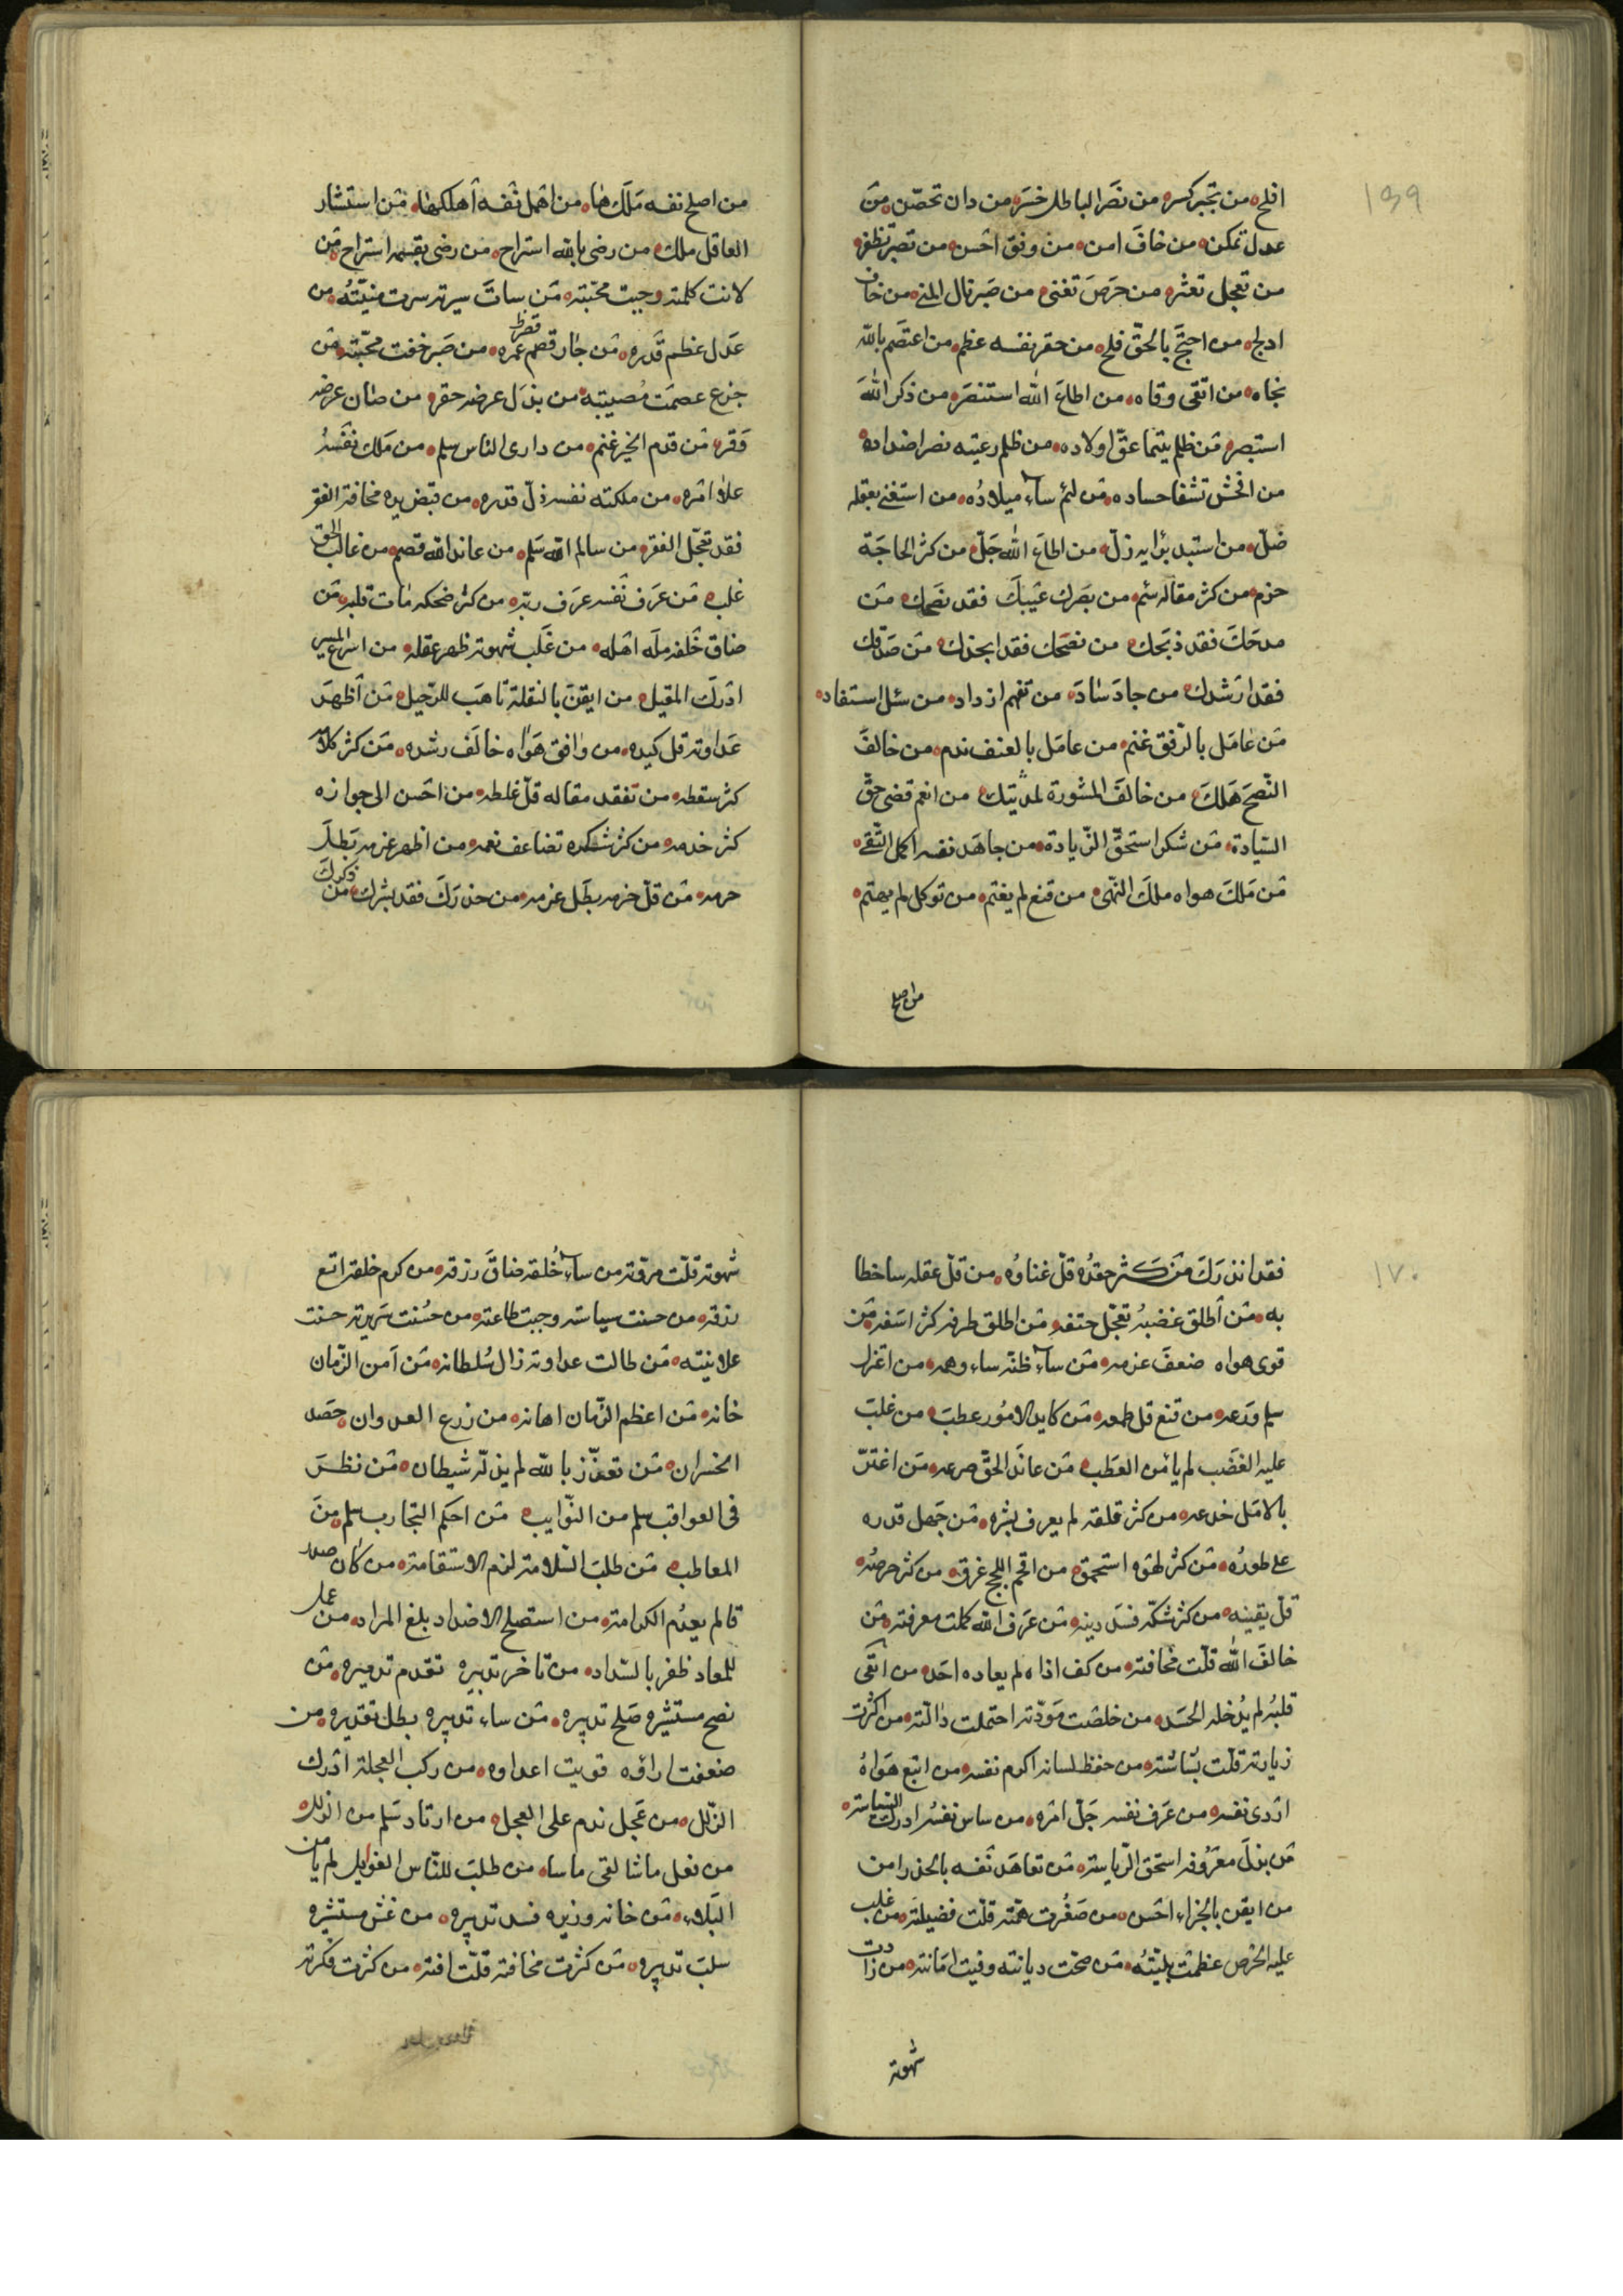 ١٦٩
افلح من تجبر كسر من نصَر الباطل خسَر من دان تحصّن من
عدل تمكن من خافَ امن من وفق احسن من تصبر ظفر
من تعجل تعثر من حرَصَ تعنى من صَبر نال المنى من خاف
ادلج من احتجَّ بالحقّ فلج من حقر نفسه عظم من اعتصَم بالله
نجاه من اتقى وقاه من اطاعَ الله استنصَر من ذكر اللهَ
استبصر من ظلم يتيما عقّ اولاده من ظلم رعيته نصر اضداده
من افحش تشفا حساده من لئم ساء ميلادُه من استغنى بعقله
ضلّ من استبد برايه زلّ من اطاعَ الله جَلّ من كثر الحاجَة
حرم من كثر مقاله سئم من بصّرك عيبكَ فقد نصَحك من
مدحَكَ فقد ذبَحك من نصَحك فقد انجدك من صَدقك
فقد ارشدك من جادَ سَادَ من تفهم ازداد من سئل استفاد
من عامَل بالرّفق غنم من عامَل بالعنف ندم من خالفَ
النّصحَ هَلكَ من خالفَ المشورة من انعم قضى حقّ
السّيادة من شكر استحقّ الزّيادة من جاهَد نفسه اكمل التّقى
من مَلكَ هواه ملكَ النّهى من قنع لم يغتم من توكل لم يهتم
من اصلح
من اصلح نفسه مَلَكهَا من اهمل نفسه أهلكها من استشار
العاقل ملك من رضى بالله استراح من رضى بقسمه استراح من
لانت كلمته وجبت محبّته من ساءَت سيرته سرت منيّتُه من
عَدل عظم قَدره من جار قصم عمره من صَبر خفت محبّته من
جزع عصمَت مُصيبته من بذَل عرضه حقر من صَان عرضه
وَقر من قدم الخير غنم من دارى الناس سلم من مَلك نفسُهُ
علا امره من ملكته نفسه ذلّ قدره من قبَض يده مخافة الفقر
فقد تعجّل الفقر من سالم الله سَلم من عاند الله قصم من غالب الحق
غلب من عَرَف نفسه عرَف ربّه من كثر ضحكه مَات قلبه من
ضاق خُلقه ملّه اهله من غَلب شهوته ظهر عقله من اسرع المسير
ادْركَ المقيل من ايقنَ بالنقلة تاهَب للرّحيل من أظهَر
عَداوته قل كيده من وافق هَواه خالَف رشده من كثر كلامه
كثر سقطه من تفقد مقاله قلّ غلطه من احسن الى جواره
كثر خدمه من كثر شكره تضاعف نعمه من اظهر عزمه بَطلَ
حزمه من قلّ حزمه بطَل عزمه من حذرَكَ فقد بشرك من ذكركَ
١٧٠
فقد انذرَكَ من كثر حقدُه قلّ غناؤُه من قلّ عقله ساء خطا
به من أطلق غضبهُ تعجّل حتفه من اطلق طرفه كثر اسَفه من
قوى هواه ضعفَ عزمه من ساءَ ظنّه ساء وهمه من اعتزل
سلم ورَعه من قنع قل طمعه من كايد الامُور عطبَ من غلبَ
عليه الغضَب لم يأمن العَطب من عاندَ الحقّ صرعه من اغترّ
بالامَل خدعه من كثر قلقه لم يعرف بشره من جَهل قدره
على طورُه من كثر لهَوه استحمق من اقحم اللجج غرق من كثر حرصُه
قلّ يقينه من كثر شكّه فسَد دينه من عرَف الله كملت معرفته من
خالفَ اللهَ قلّت مخافته من كف اذاه لم يعاده احَد من اتّقى
قلبُه لم يدُخله الحَسَد من خلصَت مَوَدّته احتملت دالّته من اكثرت
زيارته قلّت بشاشته من حفظ لسانه اكرم نفسه من اتبع هَواهُ
اردى نفسه من عَرف نفسه جَلّ امره من ساس نفسُه ادرك السياسة
من بذلَ معرُوفه استحق الرّياسة من تعاهَد نفسه بالحذر امن
من ايقن بالجزاء احسن من صَغُرت همّته قلّت فضيلته من غلب
عليه الحرَص عظمت بليّتُه من صحّت ديانته وفيت امَانته من زادت
شهوته
شهوته قلّت مروّته من ساء خُلقه ضاقَ رزقه من كرم خلقه اتسع
رزقه من حسنت سياسته وجبت طاعته من حسُنت سَريرته حسنت
علانيته من طالت عداوته زال سُلطانه من آمن الزّمان
خانه من اعظم الزّمان اهانه من زرع العدوان حصَد
الخسران من تعزّز بالله لم يذلّه شيطان من نظَر
فى العواقب سلم من النّوايب من احكم التجارب سلم منَ
المعاطب من طلبَ السّلامة لزم الاستقامة من كان صد
قا لم يعدُم الكرامة من استصلح الاضداد بلغ المراد من عمل
للمعاد ظفر بالسّداد من تاخر تدبيره تقدم تدميره من
نصح مستشيره صَلح تدبيره من ساء تدبيره بطل تقديره من
ضعفت اراؤه قويت اعداوه من ركب العجلة ادرك
الزّلل من عَجل ندم على العجل من ارتاد سَلم من الزلل
من فعل ماشا لقى ماساه من طلبَ للنّاس الغوايل لم يامن
البَلاء من خانه وزيره فسد تدبيره من غش مستشيره
سلبَ تدبيره من كثرت مخافته قلّت افته من كثرت فكرته